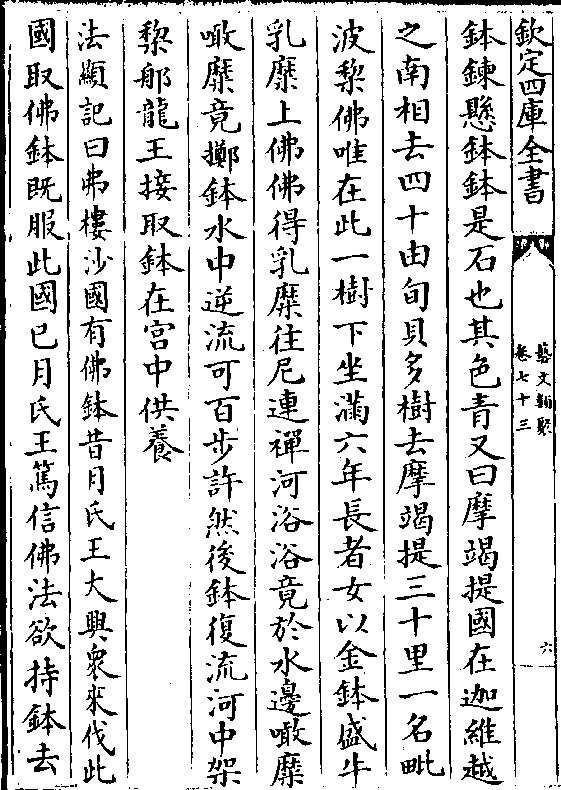 欽定四庫全書
藝文類聚
卷七十三
六
鉢鍊懸鉢鉢是石也其色青又曰摩竭提國在迦維越
之南相去四十由旬貝多樹去摩竭提三十里一名毗
波棃佛唯在此一樹下坐滿六年長者女以金鉢盛牛
乳糜上佛佛得乳糜往尼連禪河浴浴竟於水邊噉糜
噉糜竟擲鉢水中逆流可百步許然後鉢復流河中架
棃郍龍王接取鉢在宫中供養
法顯記曰弗樓沙國有佛鉢昔月氏王大興衆來伐此
國取佛鉢既服此國已月氏王篤信佛法欲持鉢去